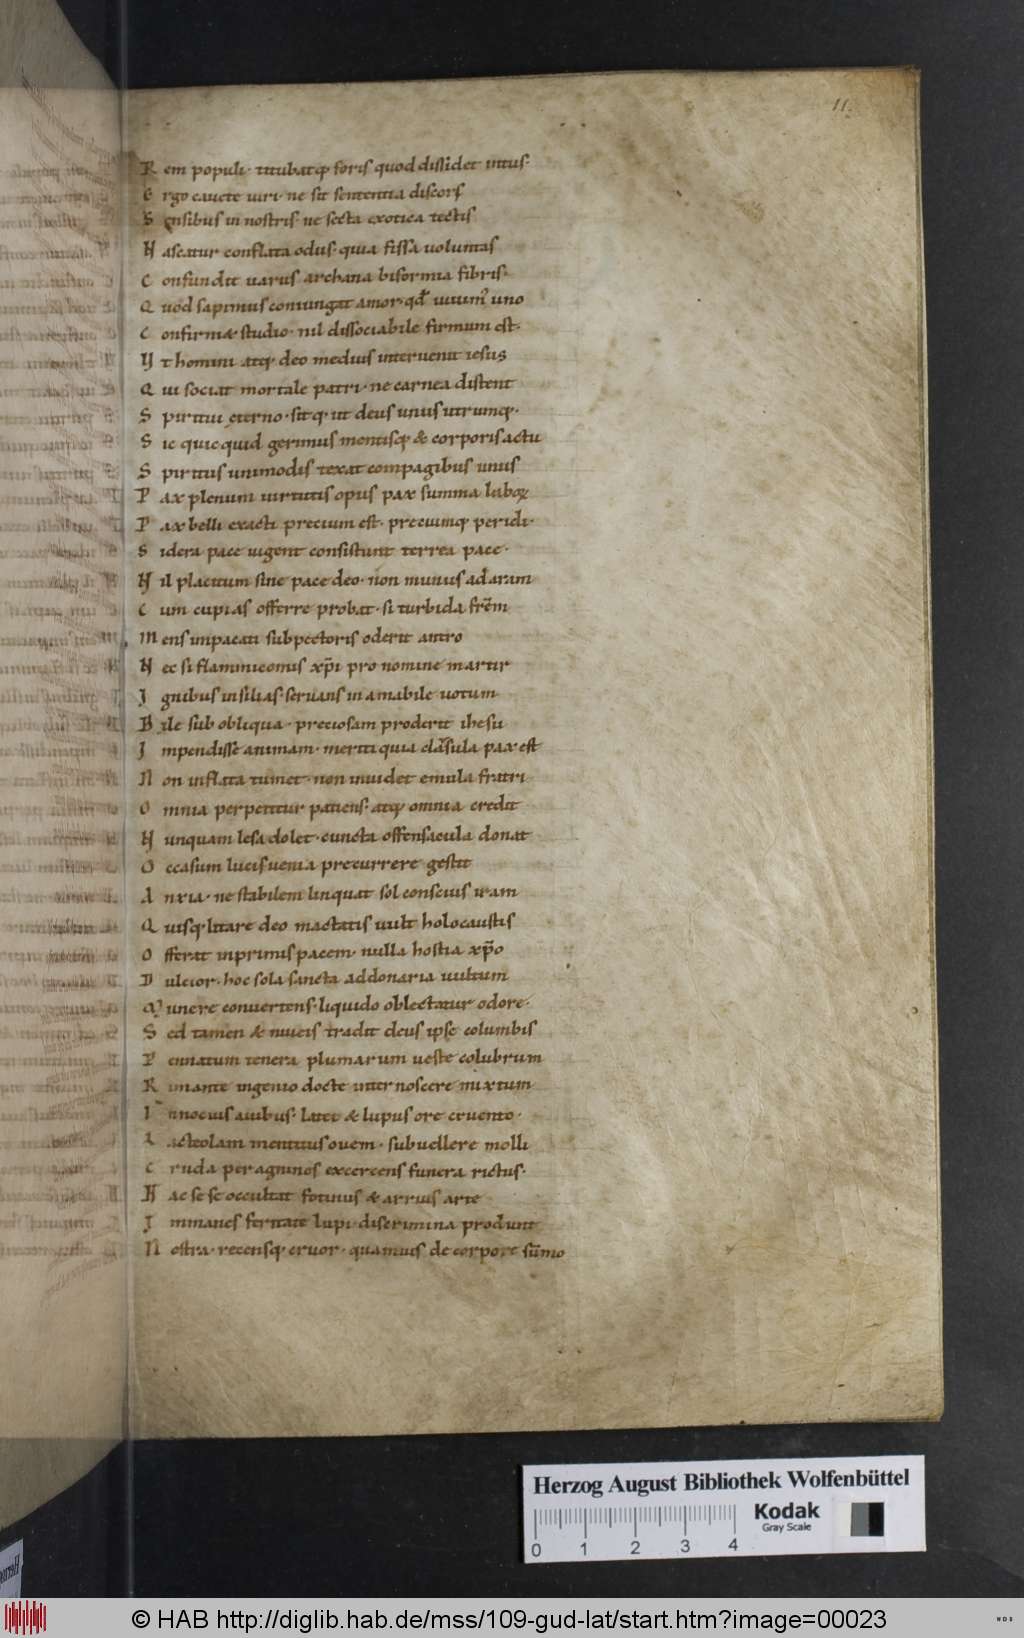 11.
R em populi· titubatq; foris quod dissidet intus·
E rgo cauete uiri· ne sit sententia discors
S ensibus in nostris· ne secta exotica tectis
N ascatur conflata odiis· quia fissa uoluntas
C onfundit uariis archana biformia fibris·
Q uod sapimus coniungat amor· qd̄ uiuim' uno
C onfirmæ studio· nil dissociabile firmum est·
U t homini atq; deo medius interuenit iesus
Q ui sociat mortale patri· ne carnea distent
S piritui ęterno· sitq; ut deus unus utrumq;·
S ic quicquid gerimus mentisq; & corporis actu
S piritus unimodis texat compagibus unus
P ax plenum uirtutis opus pax summa laboꝝ
P ax belli exacti precium est· preciumq; pericli·
S idera pace uigent consistunt terrea pace·
N il placitum sine pace deo· non munus ad aram
C um cupias offerre probat· si turbida fr̄em
M ens inpacati sub pectoris oderit antro
N ec si flammicomis xp̄i pro nomine martir
I gnibus insilias· seruans inamabile uotum
B ile sub obliqua· preciosam proderit ihesu
I mpendisse animam· meriti quia clausula pax est
N on inflata tumet· non inuidet emula fratri
O mnia perpetitur patiens· atq; omnia credit
N unquam lesa dolet· cuncta offensacula donat
O ccasum lucis uenia precurrere gestit
A nxia· ne stabilem linquat sol conscius iram
Q uisq; litare deo mactatis uult holocaustis
O fferat inprimis pacem· nulla hostia xp̄o
D ulcior· hoc sola sancta ad donaria uultum
M unere conuertens· liquido oblectatur odore·
S ed tamen & niueis tradit deus ipse columbis
P ennatum tenera plumarum ueste colubrum
R imante ingenio docte internoscere mixtum
I nnocuis auibus· latet & lupus ore cruento·
L acteolam mentitus ouem· sub uellere molli
C ruda per agninos excercens funera rictus·
H ac sese occultat fotinus & arrius arte
I mmanes feritate lupi· discrimina produnt
N ostra· recensq; cruor· quamuis de corpore sūmo
Herzog August Bibliothek Wolfenbüttel
Kodak
Gray Scale
0 1 2 3 4
© HAB http://diglib.hab.de/mss/109-gud-lat/start.htm?image=00023